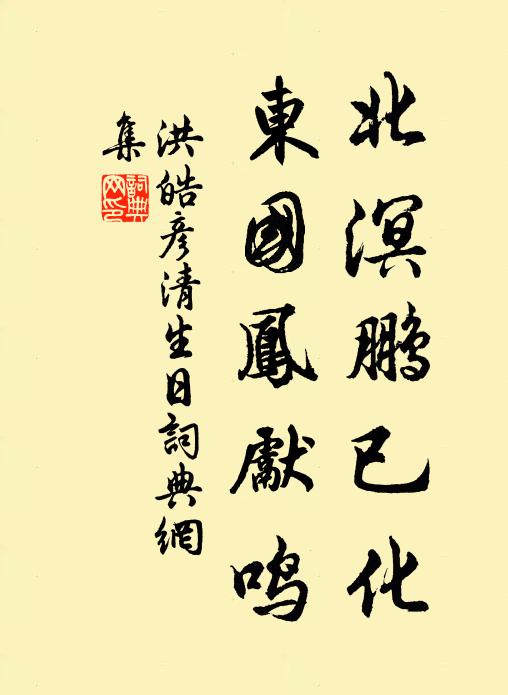 北溟鵬已化
東國鳳獻鳴
洪皓彥清生日詞典網
集
詞典
网印